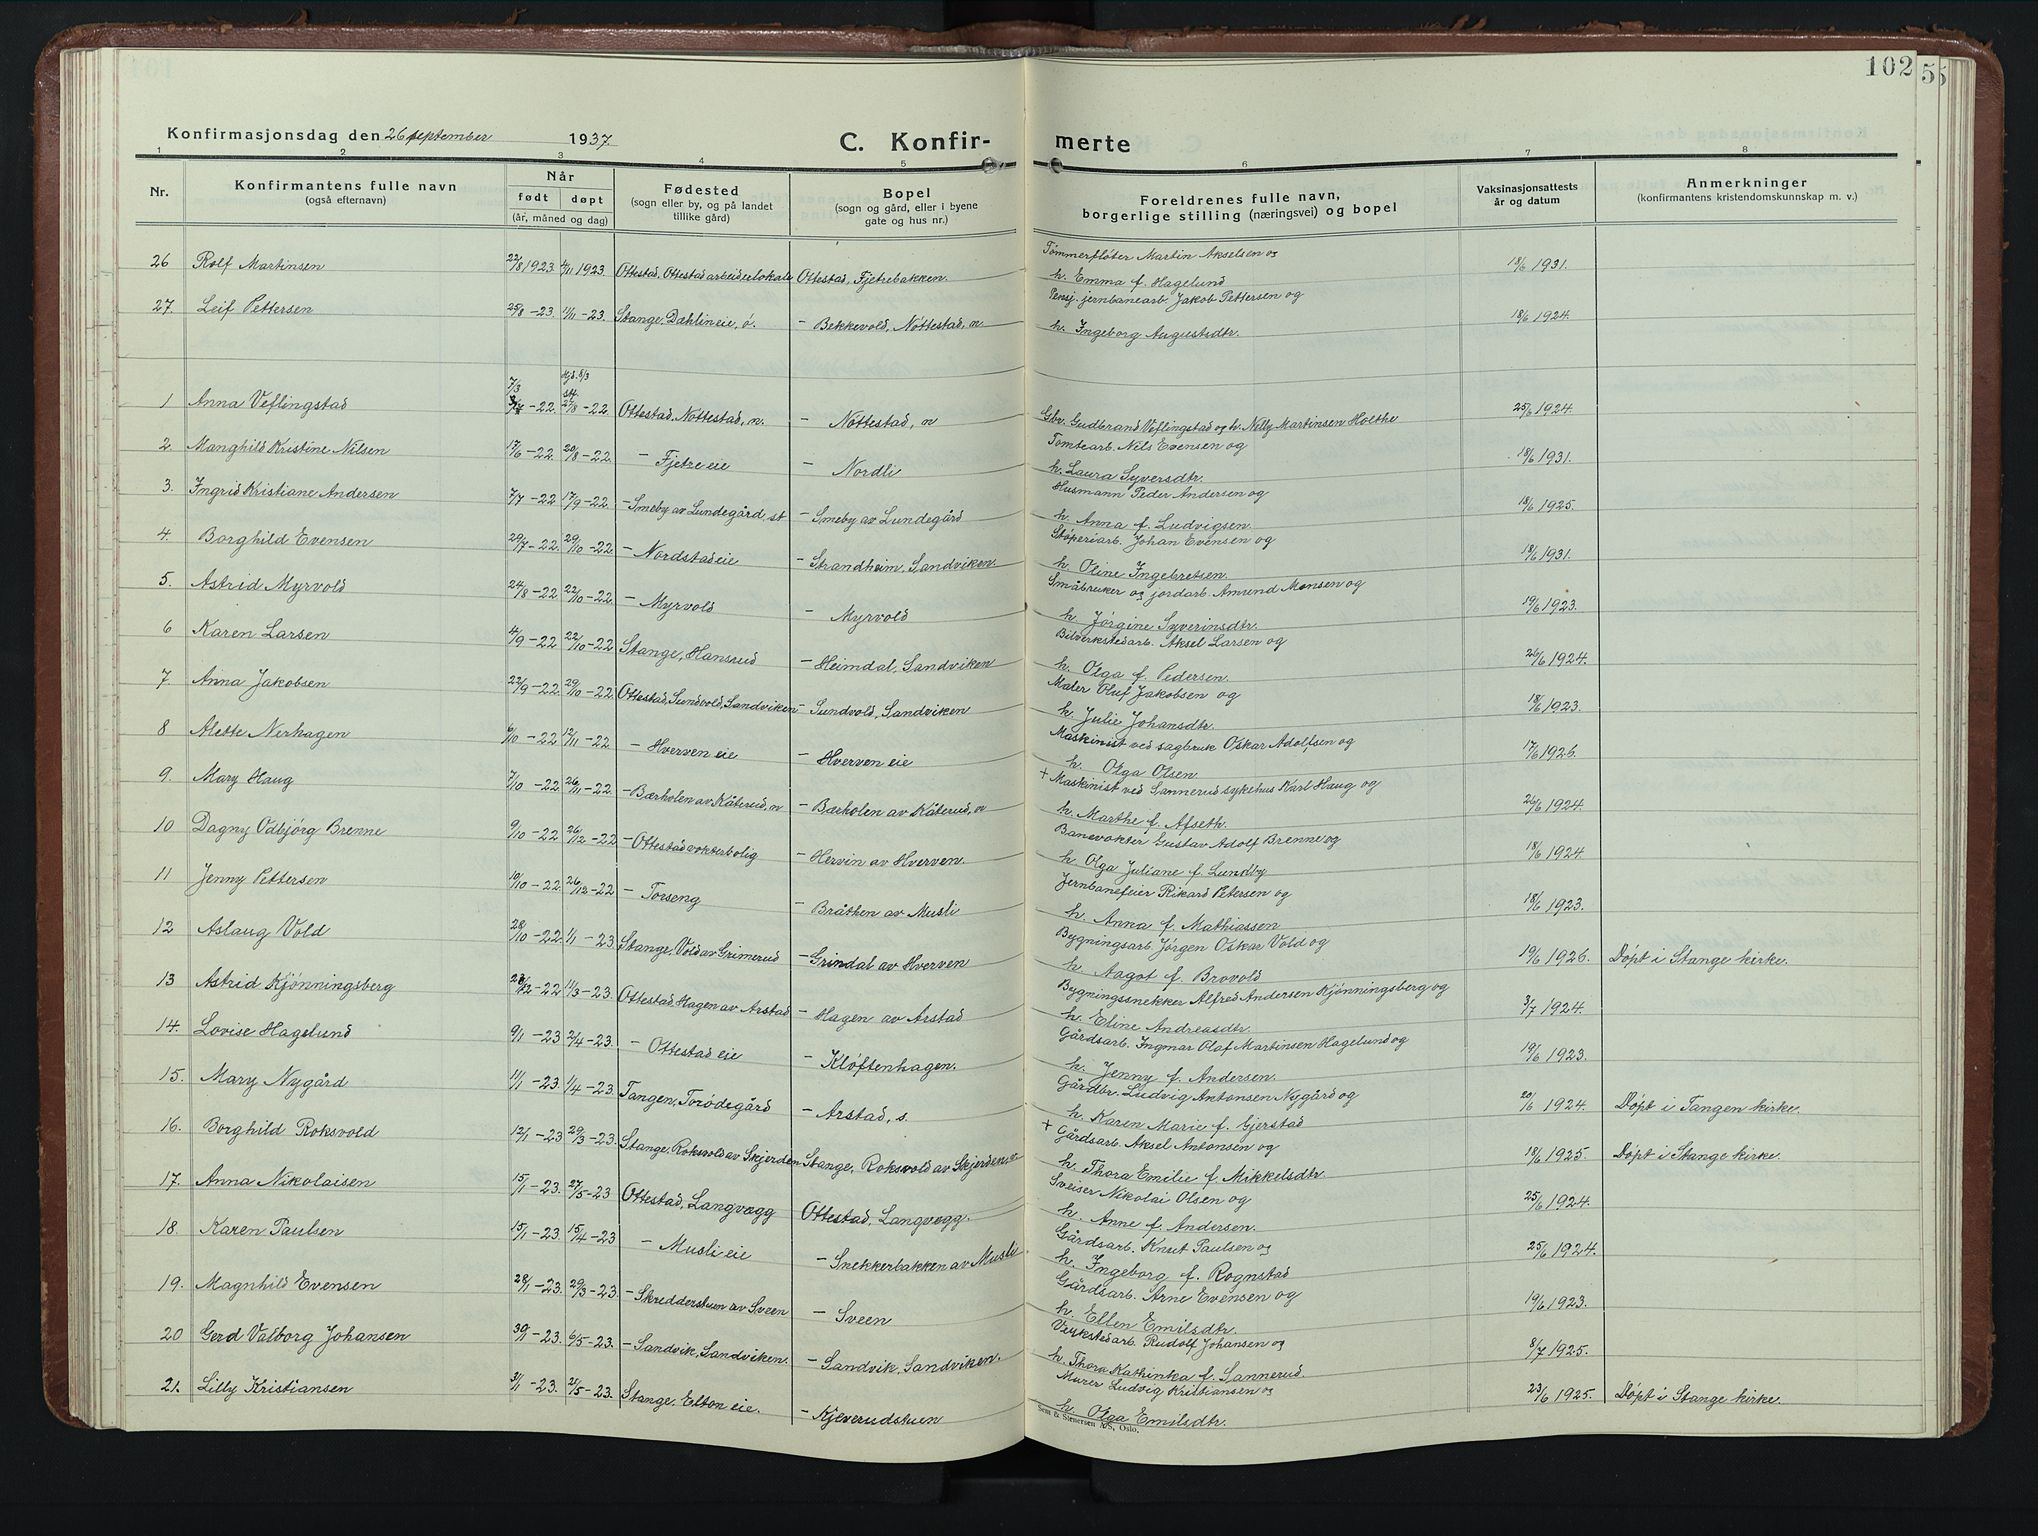 102
55
Konfirmasjonsdag den 26 september 1937.
C. Konfir-
merte
1 2 3 4 5 6 7 8
Nr.
Konfirmantens fulle navn
(også efternavn)
Når
født døpt
(år, måned og dag)
Fødested
(sogn eller by, og på landet
tillike gård)
Bopel
(sogn og gård, eller i byene
gate og hus nr.)
Foreldrenes fulle navn,
borgerlige stilling (næringsvei) og bopel
Vaksinasjonsattests
år og datum
Anmerkninger
(konfirmantens kristendomskunnskap m. v.)
26 Rolf Martinsen 22/8 1923. 4/11 1923. Ottestad, Ottestad arbeiderlokale Ottestad, Fjetrebakken. Tømmerfløter Martin Akselsen og 18/6 1931.
h. Emma f. Hagelund
27. Leif Pettersen 25/8 -23. 11/11 -23. Stange, Dæhlin eie, ø. - Bekkevold, Nøttestad, n. Pensj. jernbanearb. Jakob Pettersen og 18/6 1924.
h. Ingeborg Augustsdtr.
1 Anna Veflingstad 7/3 -22. 27/8 -22. Ottestad, Nøttestad, n. - Nøttestad, n Gbr. Gudbrand Veflingstad og h. Nelly Martinsen Holthe 25/6 1924.
2. Manghild Kristine Nilsen 17/6 -22. 20/8 -22. - Fjetre eie - Nordli Tomtearb. Nils Evensen og 18/6 1931.
h. Laura Syversdtr.
3. Ingrid Kristiane Andersen 7/7 -22 17/9 -22. - Smeby av Lundegård, st - Smeby av Lundegård Husmann Peder Andersen og 18/6 1925.
h. Anna f. Ludvigsen.
4. Borghild Evensen 20/7 -22. 29/10 -22. - Nordstad eie - Strandheim, Sandviken. Støperiarb. Johan Evensen og 18/6 1931.
h. Oline Ingebretsen.
5. Astrid Myrvold 24/8 -22. 22/10 -22. - Myrvold - Myrvold Småbruker og jordarb. Amund Monsen og 19/6 1923.
h. Jørgine Syverinsdtr.
6 Karen Larsen 4/9 -22. 22/10 -22 Stange, Hansrud - Heimdal, Sandviken Bilverkstedarb. Aksel Larsen og 26/6 1924.
h. Olga f. Pedersen.
7. Anna Jakobsen 22/9 -22. 29/10 -22. Ottestad, Sundvold, Sandviken - Sundvold, Sandviken Maler Oluf Jakobsen og 18/6 1923.
h. Julie Johansdtr.
8 Alette Nerhagen 6/10 -22 12/11 -22 - Hverven eie - Hverven eie Maskinist ved sagbruk Oskar Adolfsen og 17/6 1926.
h. Olga Olsen
9. Mary Haug 7/10 -22. 26/11 -22. - Bærholen av Kåterud, n - Bærholen av Kåterud, n + Maskinist ved Sannerud sykehus Karl Haug og 26/6 1924.
h. Marthe f. Afseth.
10 Dagny Odbjørg Brenne 9/10 -22 26/12 -22 - Ottestad vokterbolig - Hervin av Hverven. Banevokter Gustav Adolf Brenne og 18/6 1924.
h. Olga Juliane f. Lundby
11 Jenny Pettersen 10/10 -22. 26/12 -22 - Torseng - Bråthen av Musli Jernbanefeier Rikard Petersen og 18/6 1923.
h. Anna f. Mathiassen
12 Aslaug Vold 28/10 -22. 1/1 -23. Stange, Vold av Grimerud - Grindal av Hverven Bygningsarb. Jørgen Oskar Vold og 19/6 1926. Døpt i Stange kirke.
h. Aagot f. Brovold
13 Astrid Kjønningsberg 28/12 -22 11/3 -23. Ottestad, Hagen av Arstad - Hagen av Arstad Bygningssnekker Alfred Andersen Kjønningsberg og 3/7 1924.
h. Eline Andreasdtr.
14. Lovise Hagelund 9/1 -23 2/4 -23. - Ottestad eie - Kløftenhagen. Gårdsarb. Ingmar Olaf Martinsen Hagelund og 19/6 1923.
h. Jenny f. Andersen.
15. Mary Nygård 11/1 -23. 1/4 -23. Tangen, Torødegård - Arstad, s. Gårdbr. Ludvig Antonsen Nygård og 20/6 1924. Døpt i Tangen kirke.
h. Karen Marie f. Gjerstad
16. Borghild Roksvold 12/1 -23 29/3 -23. Stange, Roksvold av Skjerden Stange, Roksvold av Skjerden + Gårdsarb. Aksel Antonsen og 18/6 1925. Døpt i Stange kirke.
h. Thora Emilie f. Mikkelsdtr.
17. Anna Nikolaisen 15/1 -23. 27/5 -23 Ottestad, Langvægg Ottestad, Langvægg. Sveiser Nikolai Olsen og 25/6 1924.
h. Anne f. Andersen.
18. Karen Paulsen 15/1 -23. 15/4 -23 - Musli eie - Snekkerbakken av Musli Gårdsarb. Knut Paulsen og 25/6 1924.
h. Ingeborg f. Rognstad
19. Magnhild Evensen 28/1 -23. 29/3 -23. - Skredderstuen av Sveen - Sveen Gårdsarb. Arne Evensen og 19/6 1923.
h. Ellen Emilsdtr.
20 Gerd Valborg Johansen 30/1 -23. 6/5 -23. - Sandvik, Sandviken. - Sandvik, Sandviken. Verkstedarb. Rudolf Johansen og 8/7 1925.
h. Thora Kathinka f. Sannerud.
21. Lilly Kristiansen 31/1 -23. 21/5 -23. Stange, Elton eie. - Kjeverudstuen Murer Ludvig Kristiansen og 23/6 1925. Døpt i Stange kirke.
h. Olga Emilsdtr.
Sem & Stenersen A/S, Oslo.